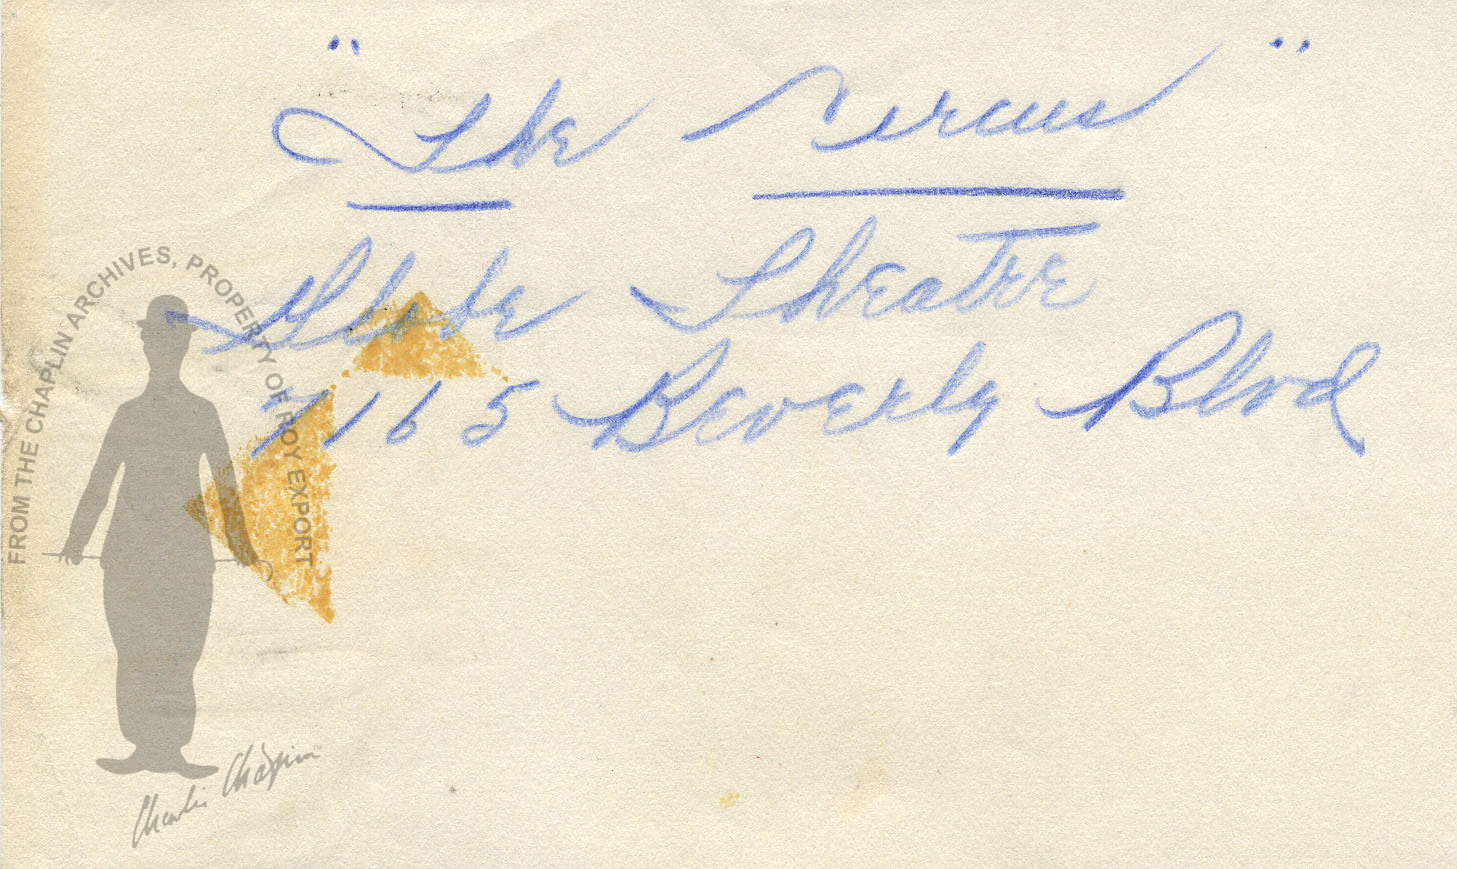 "The Circus"
Globe Theatre
7165 Beverly Blvd
FROM THE CHAPLIN ARCHIVES, PROPERTY OF ROY EXPORT
Charlie Chaplin